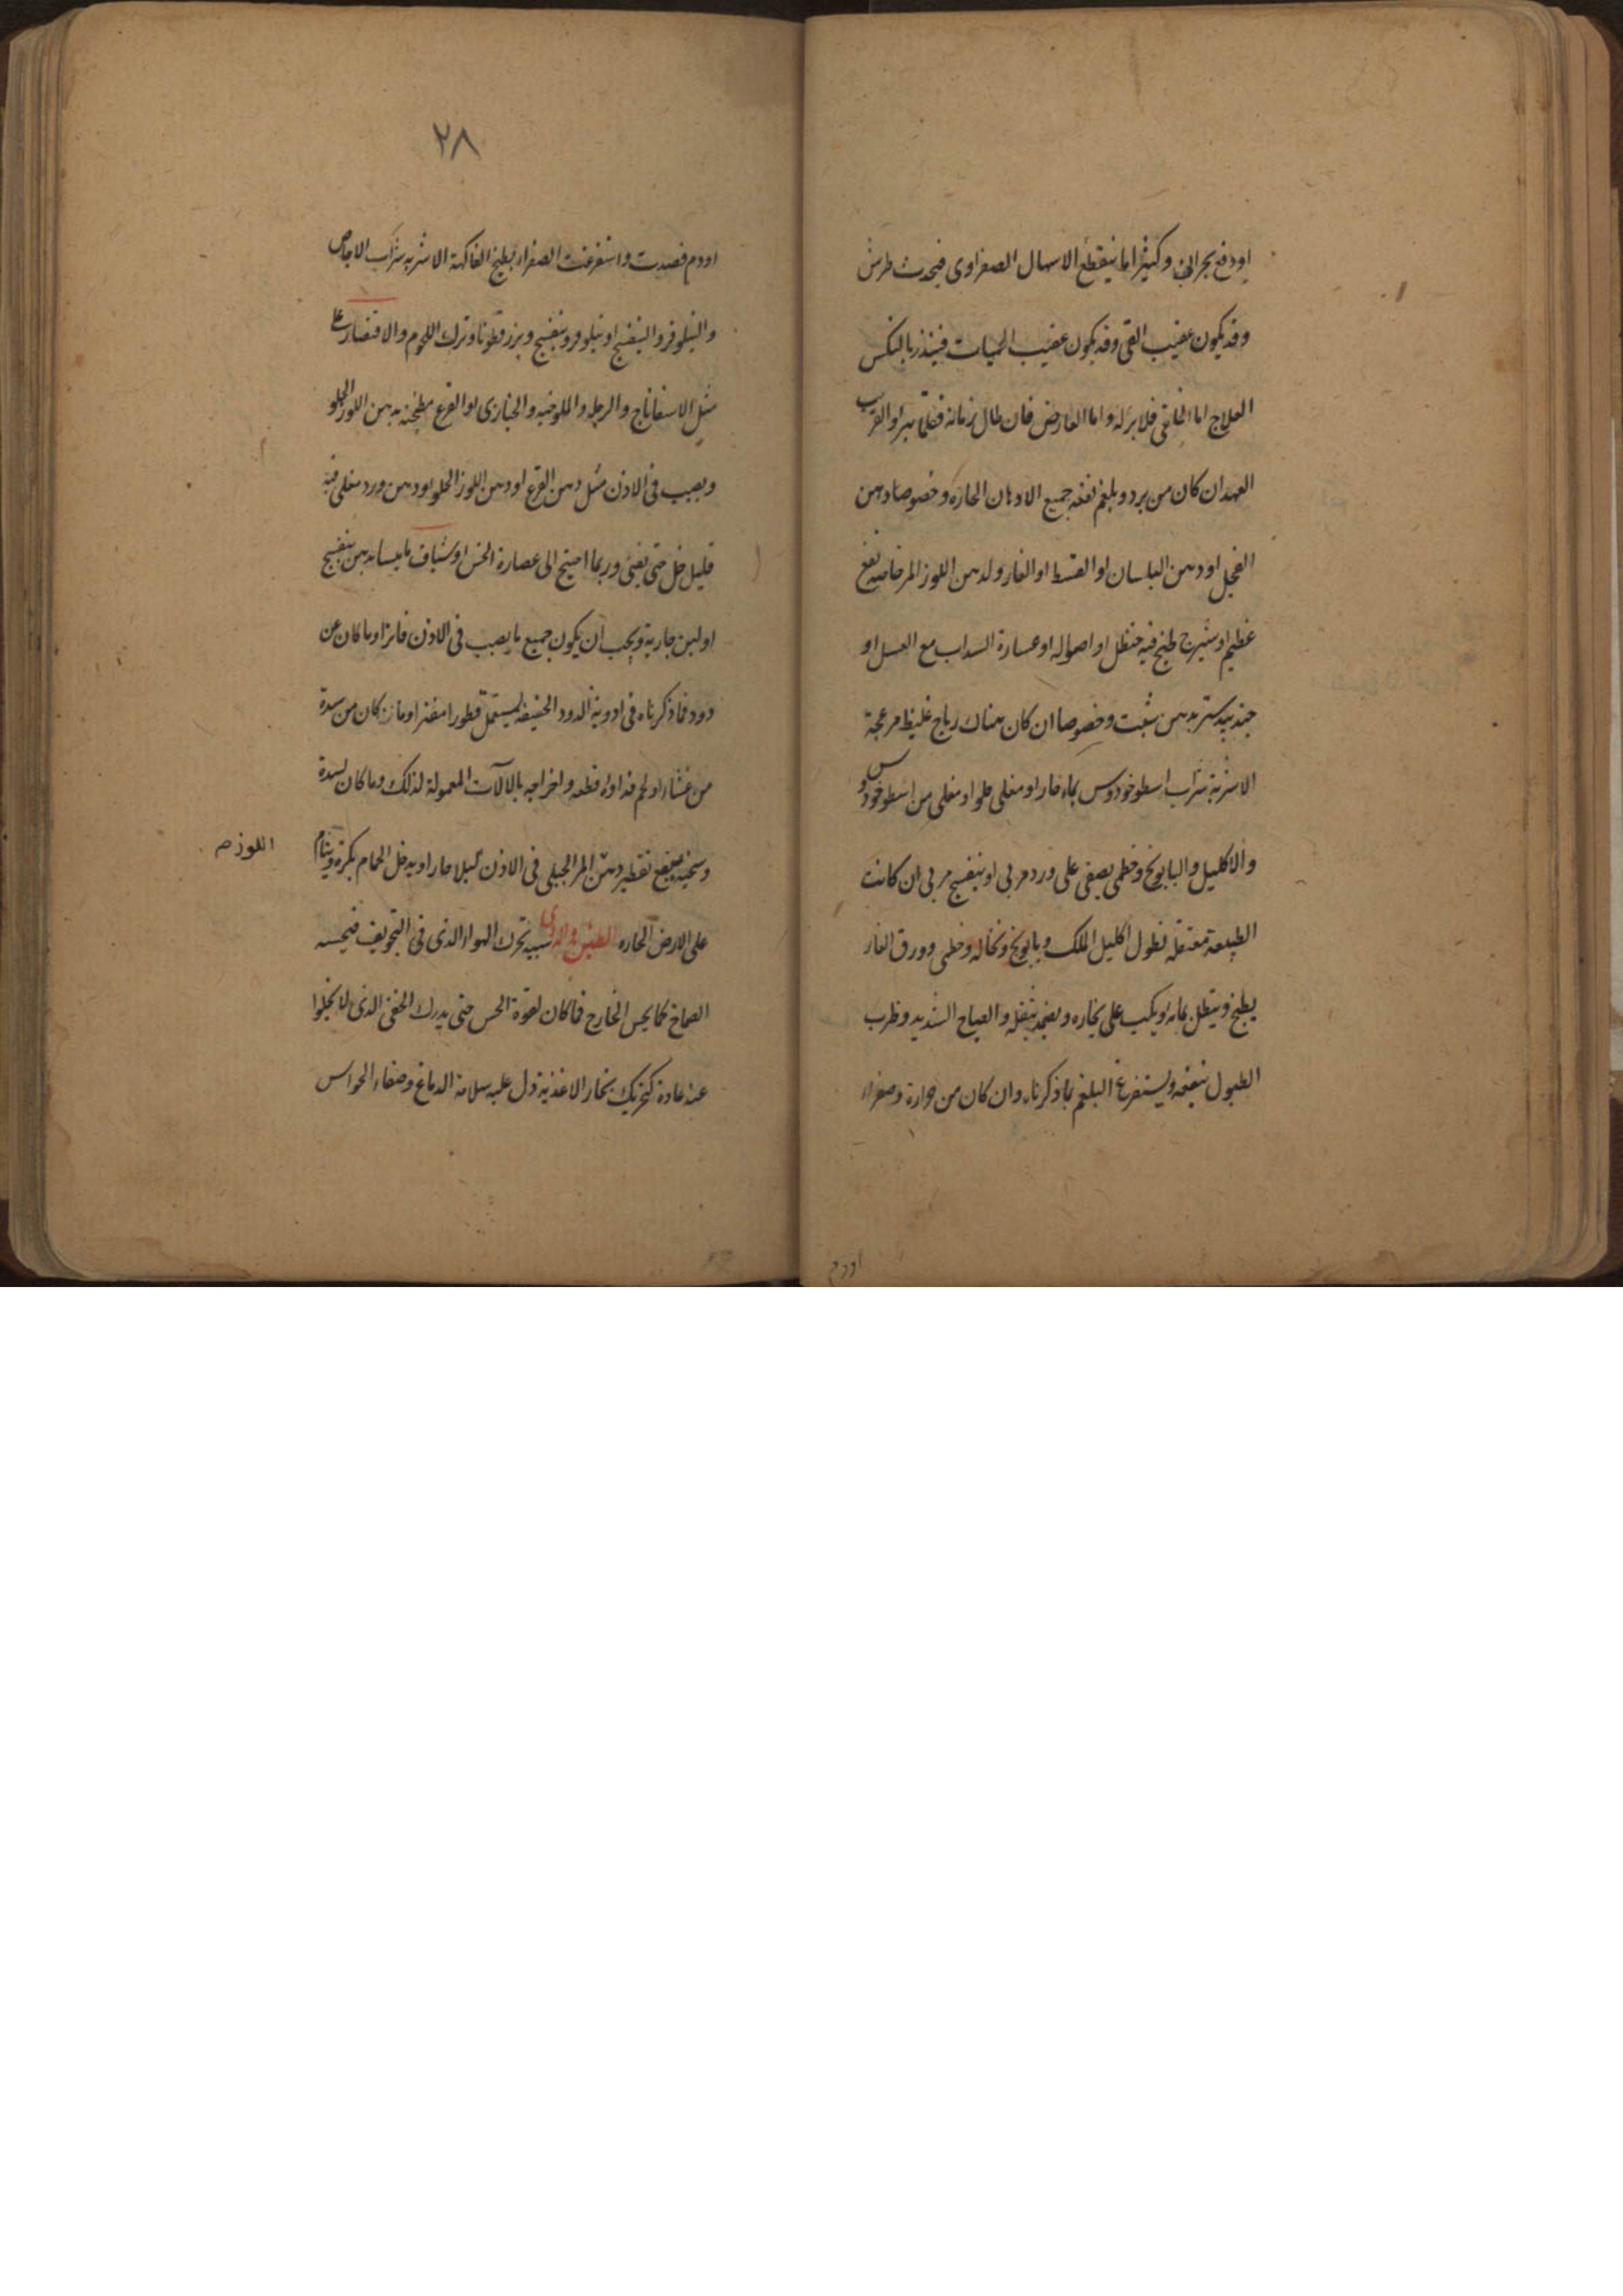 اودفع بحراني وكثيرا ما ينقطع الاسهال الصفراوى فيحدث طرش
وقد يكون عقيب القى وقد يكون عقيب الحميات فينذر بالنكس
العلاج اما الخلقى فلا برء له واما العارض فان طال زمانه فقلما يبرا والقريب
العهد ان كان من برد وبلغم نفعه جميع الادهان الحارة وخصوصا دهن
الفجل اودهن البلسان او القسط او الغار ولدهن اللوز المر خاصية نفع
عظيم اوشيرج طبخ فيه حنظل او اصوله اوعصارة السداب مع العسل او
جندبيدستر بدهن شبت وخصوصا ان كان هناك رياح غليظ مزعجة
الاشربة شراب اسطوخودوس بماء حار اومغلى حلو اومغلى من اسطوخودوس
والاكليل والبابونج وخطمى يصفى على ورد مربى اوبنفسج مربى ان كانت
الطبيعة معتقلة نطول اكليل الملك وبابونج ونخاله وخطمى وورق الغار
يطبخ وينطل بمائه ويكب على بخاره ويضمد بثفله والصياح الشديد وضرب
الطبول ينفعه ويستفرغ البلغم بما ذكرناه وان كان من حرارة وصفراء
اودم
٢٨
اودم فصدت واستفرغت الصفراء بطبخ الفاكهة الاشربه شراب الاجاص
والنيلوفر والبنفسج او نيلوفر وبنفسج وبزرقطونا وترك اللحوم والاقتصار على
مثل الاسفاناج والرجله والملوخيه والخبازى او القرع مطجنه بدهن اللوز الحلو
ويصب فى الاذن مثل دهن القرع اودهن اللوز الحلو اودهن ورد مغلى فيه
قليل خل حتى يفنى وربما احتيج الى عصارة الخس اوشياف ماميسا بدهن بنفسج
اولبن جارية ويجب ان يكون جميع ما يصب فى الاذن فاترا وما كان عن
دود فما ذكرناه فى ادوية الدود الخفيفة يستعمل قطورا مفترا وما كان من سدة
من غشاء اولحم فدواؤه قطعه واخراجه بالالآت المعمولة لذلك وما كان لسدة
وسخيه ينفع تقطير دهن المر الجبلى فى الاذن ليلا حارا ويدخل الحمام بكرة وينام
اللوز صم
على الارض الحاره الطنين والدوى سببه تحرك الهواء الذى فى التجويف فيحسه
الصماخ كما يحس الخارج فما كان لقوة الحس حتى يدرك الخفى الذى لا يخلوا
عنه عادة كتحريك بخار الاغذية دل عليه سلامة الدماغ وصفاء الحواس